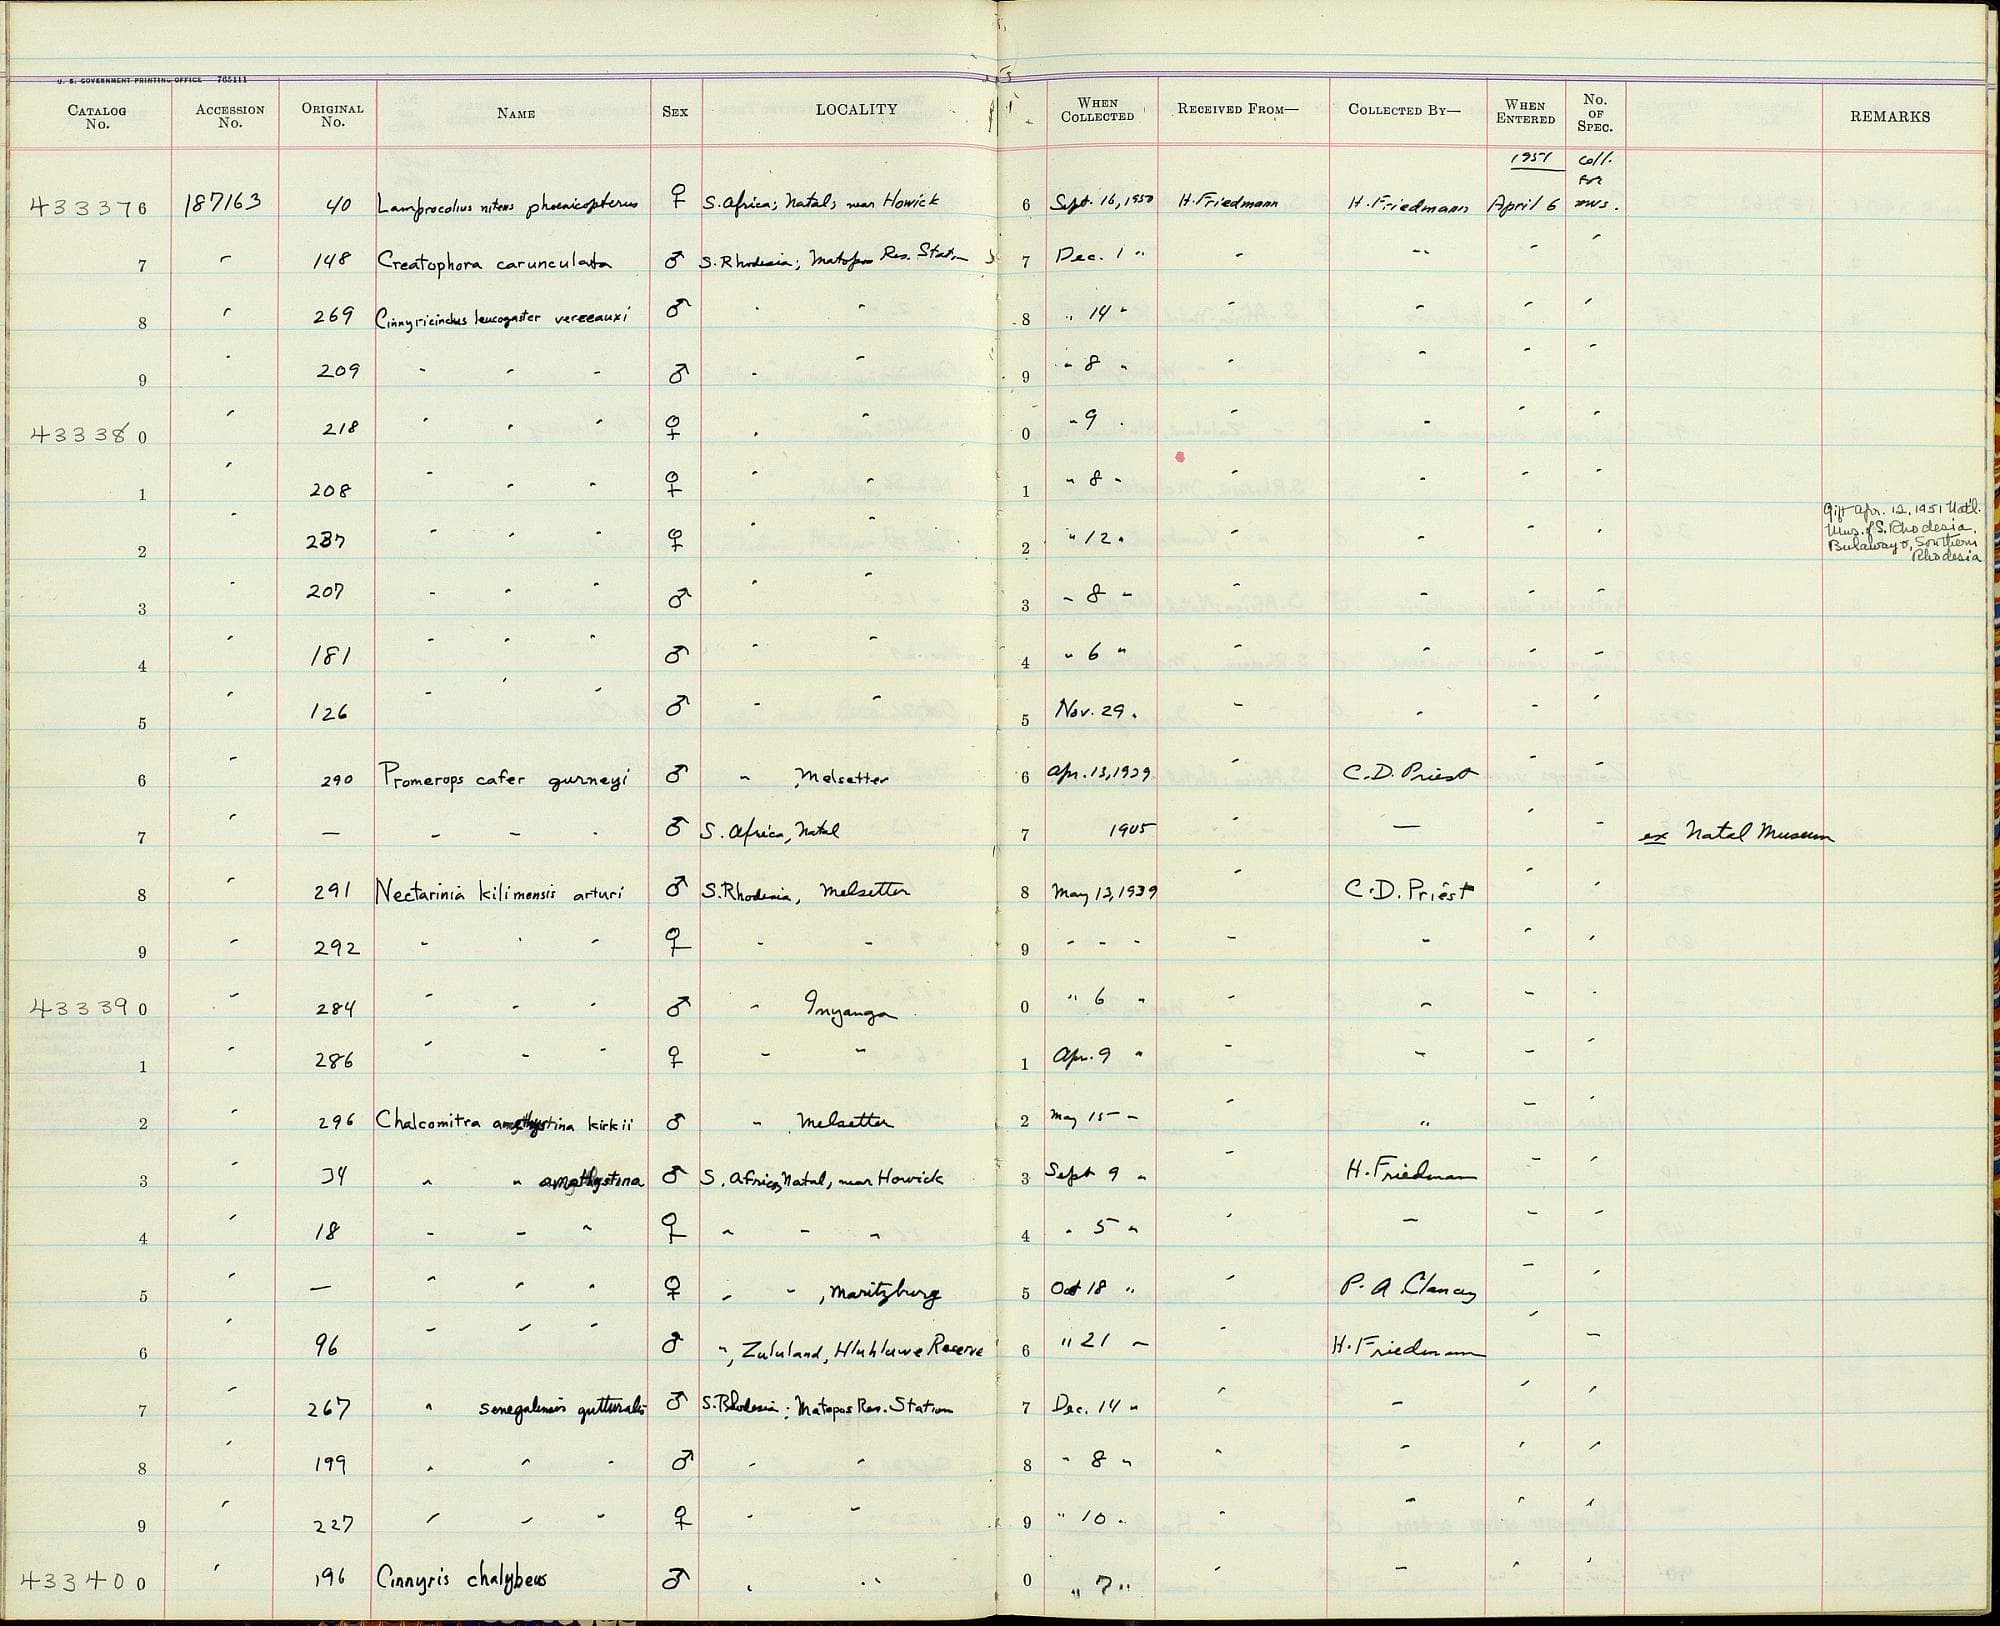 U. S. GOVERNMENT PRINTING OFFICE 765111
CATALOG No. ACCESSION No. ORIGINAL No. NAME SEX LOCALITY WHEN COLLECTED RECEIVED FROM— COLLECTED BY— WHEN ENTERED No. OF SPEC. REMARKS
1951 coll. for mus.
433376 187163 40 Lamprocolius nitens phoenicopterus ♀ S. Africa; Natal; near Howick 6 Sept. 16, 1950 H. Friedmann H. Friedmann April 6
7 " 148 Creatophora carunculata ♂ S. Rhodesia; Matopos Res. Station 7 Dec. 1 " " " " "
8 " 269 Cinnyricinclus leucogaster verreauxi ♂ " " 8 " 14 " " " " "
9 " 209 " " " ♂ " " 9 " 8 " " " " "
433380 " 218 " " " ♀ " " 0 " 9 " " " " "
1 " 208 " " " ♀ " " 1 " 8 " " " " "
2 " 237 " " " ♀ " " 2 " 12 " " " " " Gift Apr. 12, 1951 Nat'l. Mus. of S. Rhodesia, Bulawayo, Southern Rhodesia
3 " 207 " " " ♂ " " 3 " 8 " " " " "
4 " 181 " " " ♂ " " 4 " 6 " " " " "
5 " 126 " " " ♂ " " 5 Nov. 29 " " " " "
6 " 290 Promerops cafer gurneyi ♂ " , Melsetter 6 Apr. 13, 1939 " C. D. Priest " "
7 " — " " " ♂ S. Africa, Natal 7 1905 " — " " ex Natal Museum
8 " 291 Nectarinia kilimensis arturi ♂ S. Rhodesia, Melsetter 8 May 13, 1939 " C. D. Priest " "
9 " 292 " " " ♀ " " 9 " " " " " " "
433390 " 284 " " " ♂ " Inyanga 0 " 6 " " " " "
1 " 286 " " " ♀ " " 1 Apr. 9 " " " " "
2 " 296 Chalcomitra amethystina kirkii ♂ " Melsetter 2 May 15 " " " " "
3 " 34 " " amethystina ♂ S. Africa, Natal, near Howick 3 Sept 9 " " H. Friedmann " "
4 " 18 " " " ♀ " " " 4 " 5 " " " " "
5 " — " " " ♀ " " , Maritzburg 5 Oct 18 " " P. A. Clancey " "
6 " 96 " " " ♂ " , Zululand, Hluhluwe Reserve 6 " 21 " " H. Friedmann " "
7 " 267 " senegalensis gutturalis ♂ S. Rhodesia; Matopos Res. Station 7 Dec. 14 " " " " "
8 " 199 " " " ♂ " " 8 " 8 " " " " "
9 " 227 " " " ♀ " " 9 " 10 " " " " "
433400 " 196 Cinnyris chalybeus ♂ " " 0 " 7 " " " " "